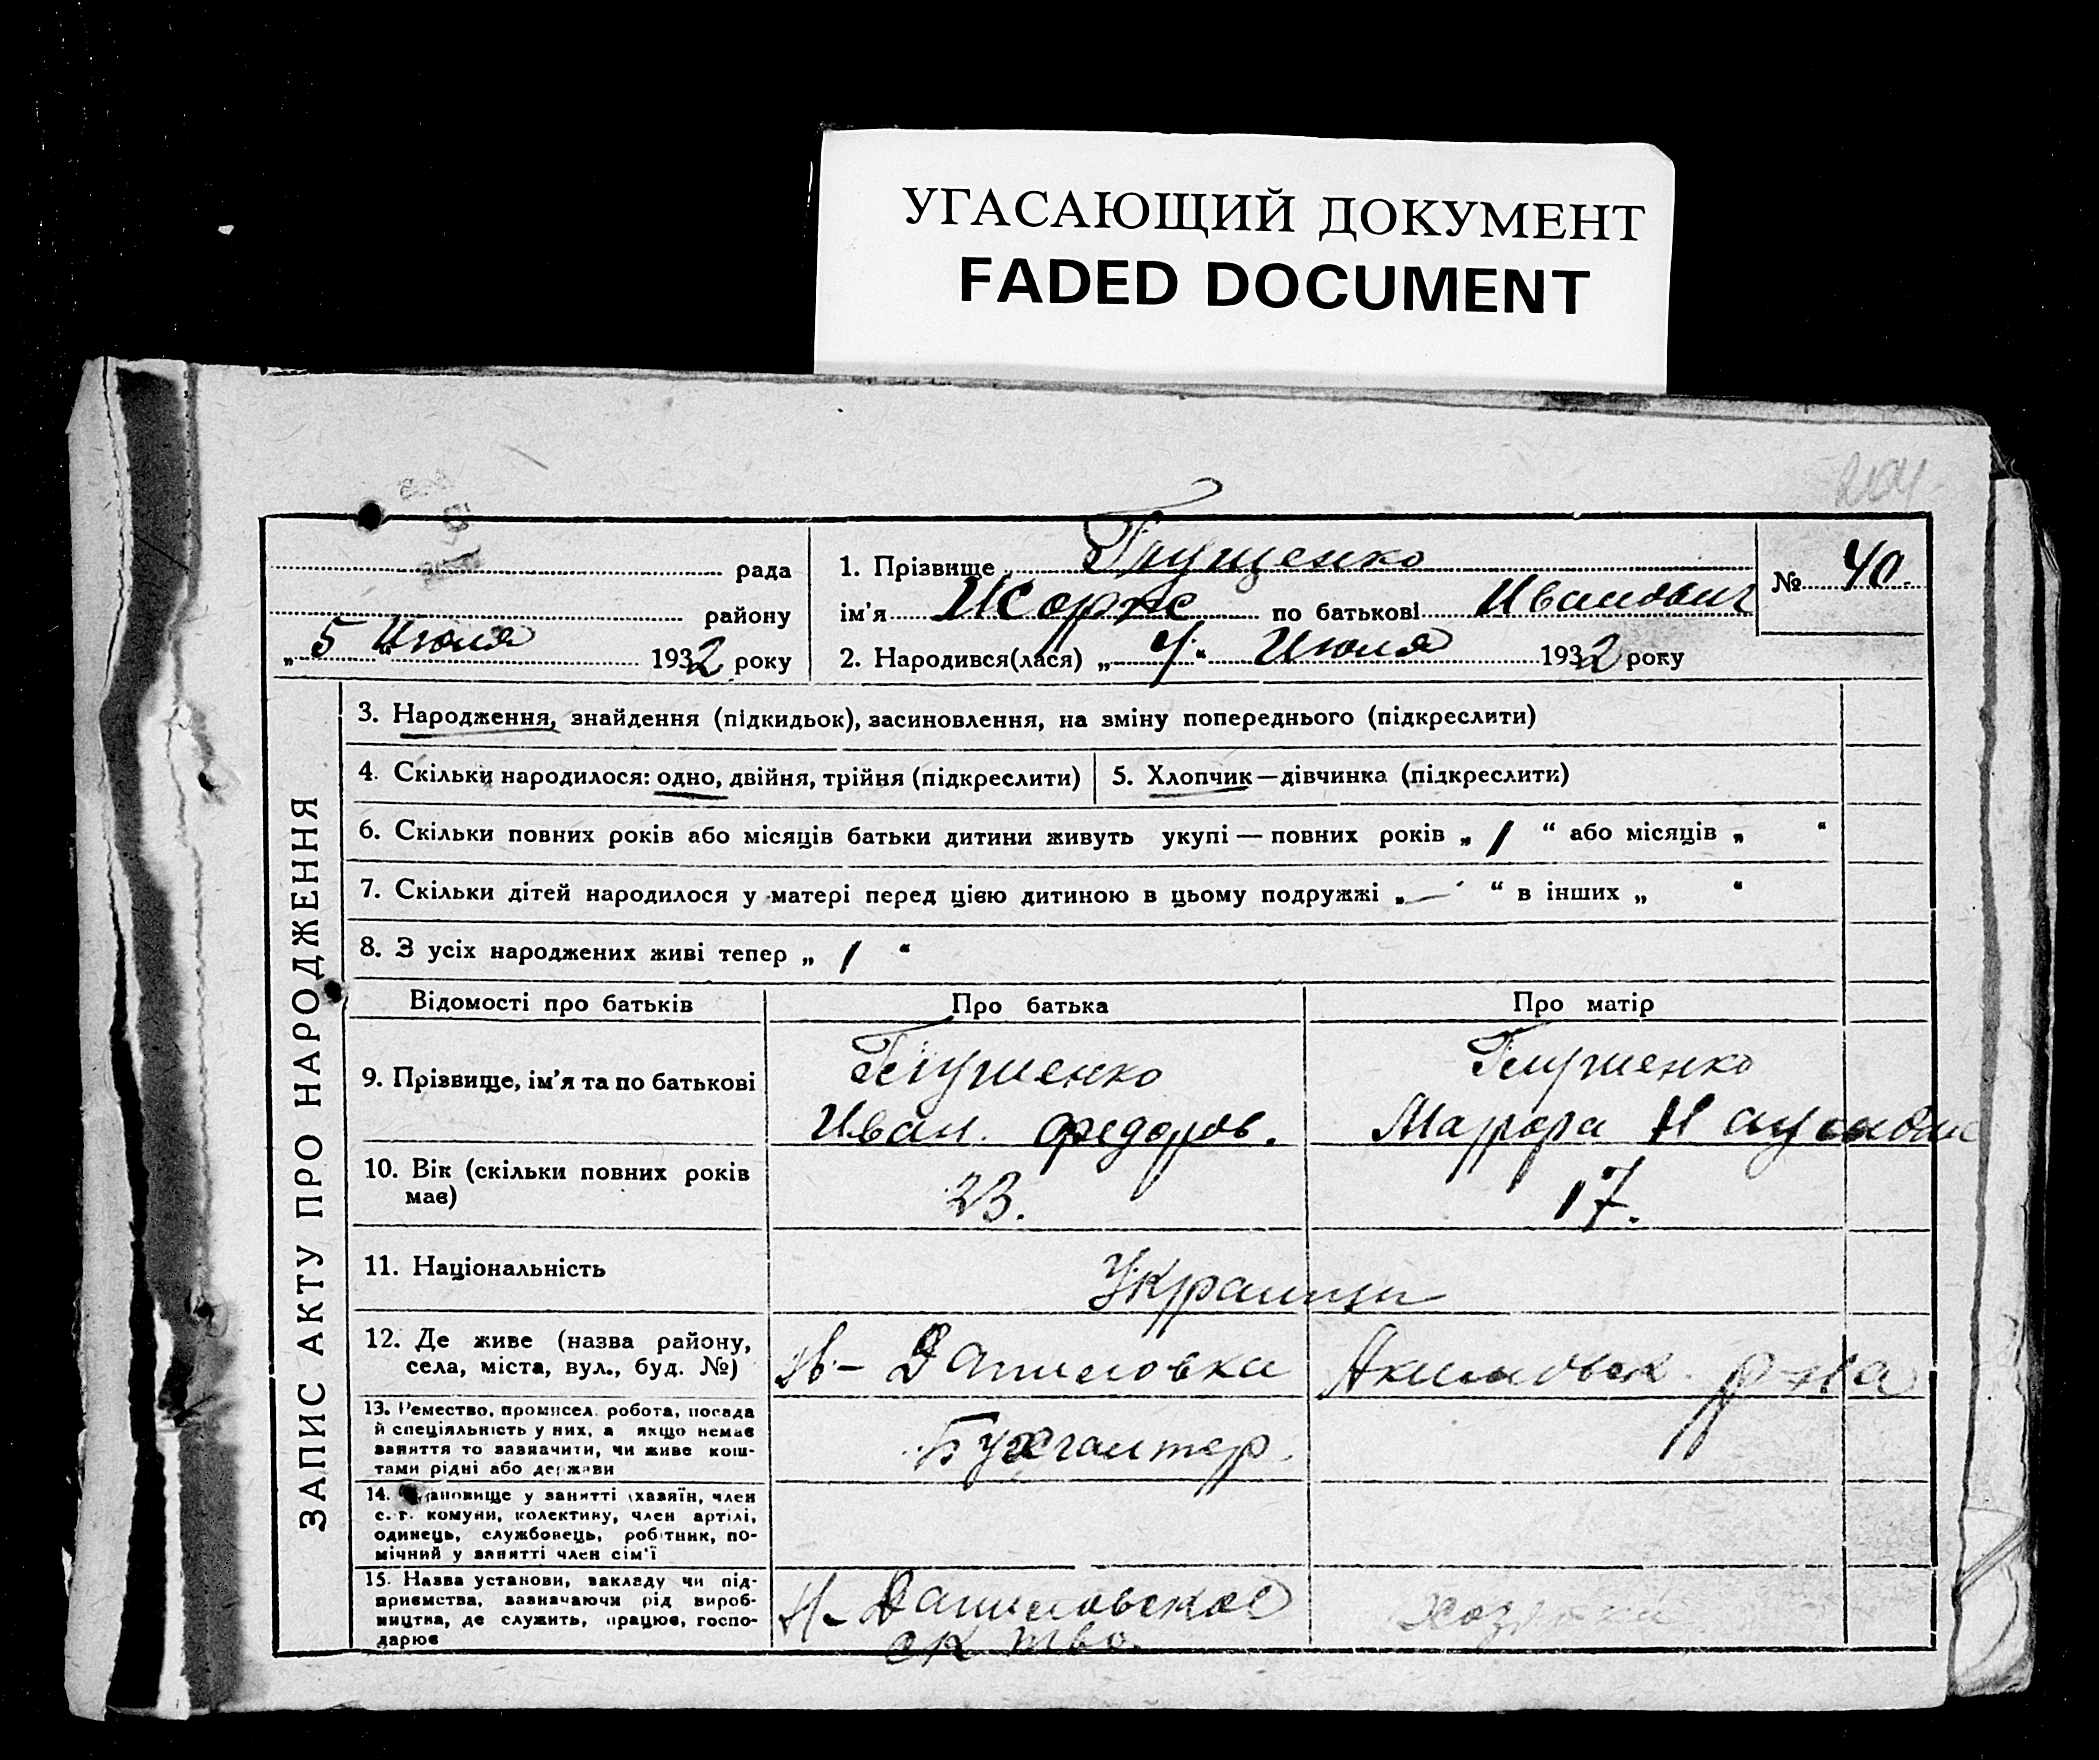 УГАСАЮЩИЙ ДОКУМЕНТ
FADED DOCUMENT
рада
району
„ 5 " Июля 1932 року
1. Прізвище Глущенко
ім'я Жорж по батькові Иванович
2. Народився(лася) „ 4 " Июля 1932 року
№ 40.
ЗАПИС АКТУ ПРО НАРОДЖЕННЯ
3. Народження, знайдення (підкидьок), засиновлення, на зміну попереднього (підкреслити)
4. Скільки народилося: одно, двійня, трійня (підкреслити)
5. Хлопчик—дівчинка (підкреслити)
6. Скільки повних років або місяців батьки дитини живуть укупі — повних років „ 1 “ або місяців „ “
7. Скільки дітей народилося у матері перед цією дитиною в цьому подружжі „ — “ в інших „ “
8. З усіх народжених живі тепер „ 1 “
Відомості про батьків
Про батька
Про матір
9. Прізвище, ім'я та по батькові
Глущенко
Иван Федоров.
Глущенко
Марфа
10. Вік (скільки повних років
має)
23.
17.
11. Національність
Украинцы
12. Де живе (назва району,
села, міста, вул., буд. №)
Н- Даниловка
Акимовск. р-на
13. Ремество, промисел. робота, посада
й спеціяльність у них, а якщо немає
заняття то зазначити, чи живе кош-
тами рідні або держави
Бухгалтер.
14. Становище у занятті (хазяїн, член
с.-г. комуни, колективу, член артілі,
одинець, службовець, робітник, по-
мічний у занятті член сім'ї
15. Назва установи, закладу чи під-
приємства, зазначаючи рід вироб-
ництва, де служить, працює, госпо-
дарює
Н- Даниловское
ск тво.
хозяйка